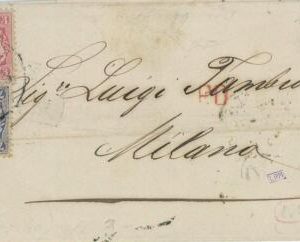 Sigr. Luigi Tambu
P.D.
Milano